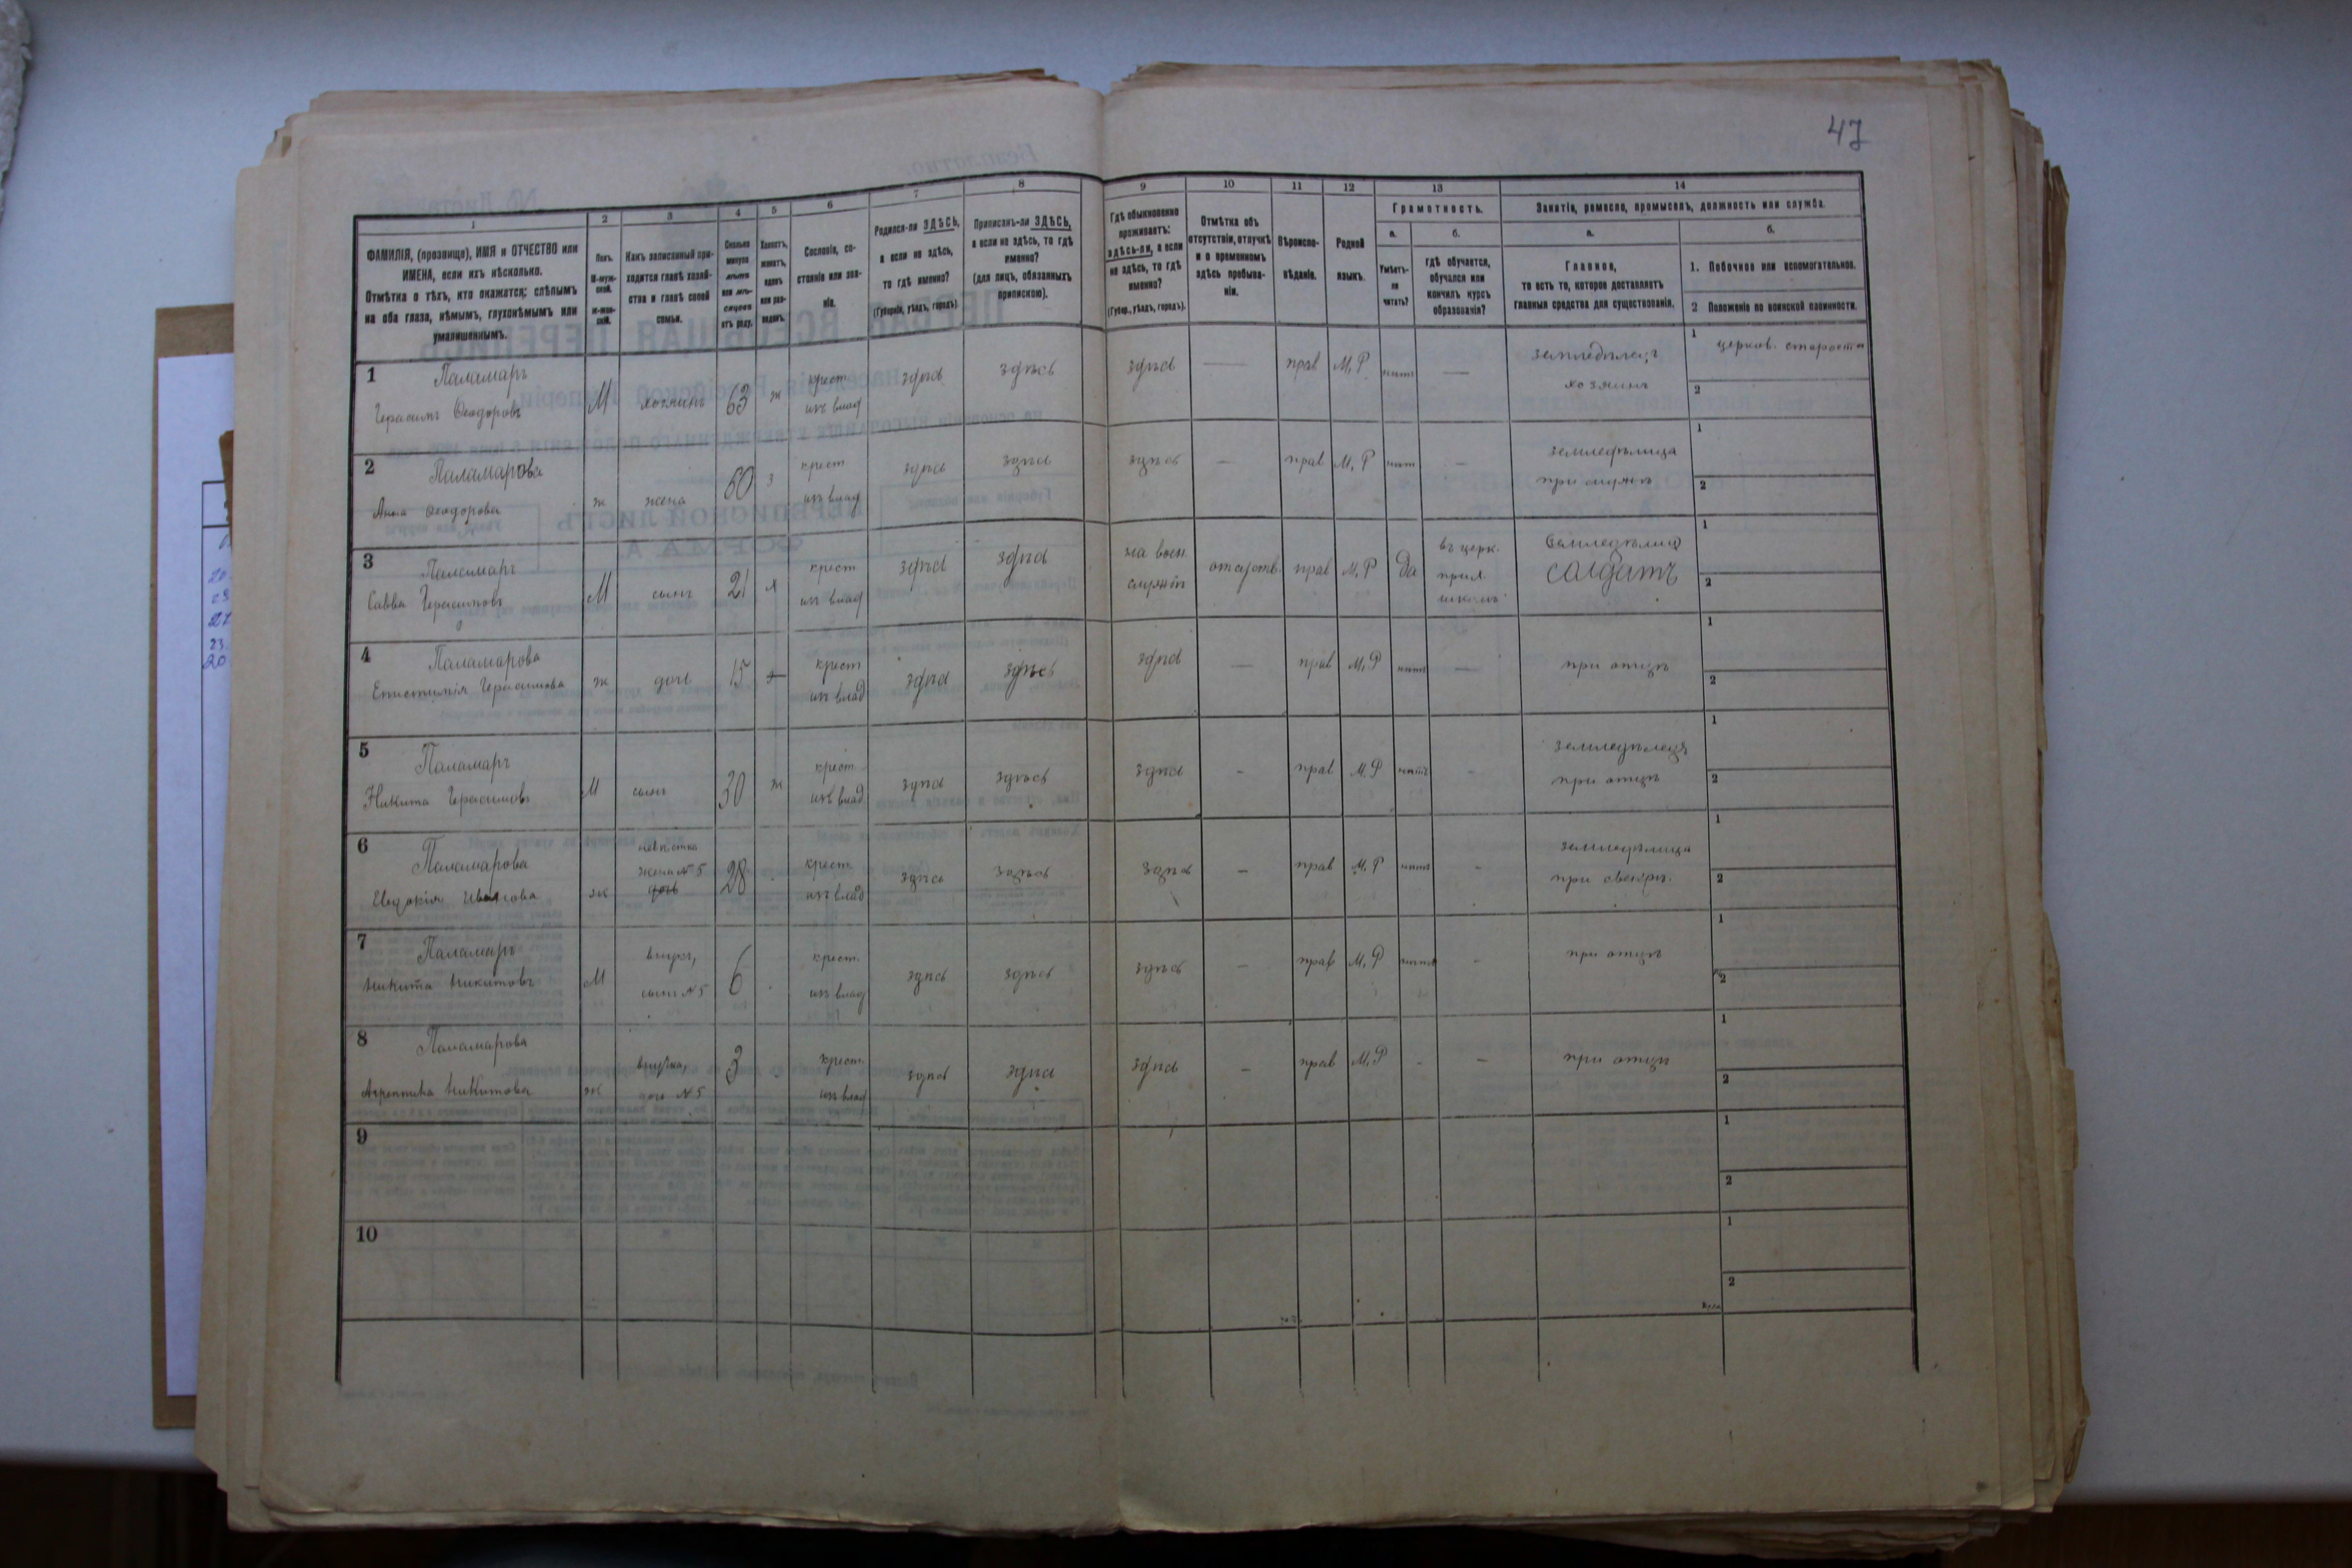 47
1 2 3 4 5 6 7 8 9 10 11 12 13 14
ФАМИЛІЯ, (прозвище), ИМЯ и ОТЧЕСТВО или
ИМЕНА, если ихъ нѣсколько.
Отмѣтка о тѣхъ, кто окажется: слѣпымъ
на оба глаза, нѣмымъ, глухонѣмымъ или
умалишеннымъ.
Полъ.
М-муж-
ской.
Ж-жен-
скій.
Какъ записанный при-
ходится главѣ хозяй-
ства и главѣ своей
семьи.
Сколько
минуло
лѣтъ
или мѣ-
сяцевъ
отъ роду.
Холостъ,
женатъ,
вдовъ
или раз-
веденъ.
Сословіе, со-
стояніе или зва-
ніе.
Родился-ли ЗДѢСЬ,
а если не здѣсь,
то гдѣ именно?
(Губернія, уѣздъ, городъ).
Приписанъ-ли ЗДѢСЬ,
а если не здѣсь, то гдѣ
именно?
(для лицъ, обязанныхъ
припискою).
Гдѣ обыкновенно
проживаетъ:
здѣсь-ли, а если
не здѣсь, то гдѣ
именно?
(Губер., уѣздъ, городъ).
Отмѣтка объ
отсутствіи, отлучкѣ
и о временномъ
здѣсь пребыва-
ніи.
Вѣроиспо-
вѣданіе.
Родной
языкъ.
Грамотность.
а.
Умѣетъ-
ли
читать?
б.
гдѣ обучается,
обучался или
кончилъ курсъ
образованія?
Занятіе, ремесло, промыселъ, должность или служба.
а.
Главное,
то есть то, которое доставляетъ
главныя средства для существованія.
б.
1. Побочное или вспомогательное.
2 Положеніе по воинской повинности.
1 Паламаръ
Герасимъ Ѳеодоровъ М хозяинъ 63 ж крест. изъ влад здѣсь здѣсь здѣсь — прав М,Р нѣтъ — земледѣлецъ
хозяинъ
1 церков. староста
2
2 Паламарова
Анна Ѳеодорова ж жена 60 з крест изъ влад здѣсь здѣсь здѣсь — прав М,Р нѣт — земледѣлица
при мужѣ
1
2
3 Паламаръ
Савва Герасимовъ М сынъ 21 х крест изъ влад здѣсь здѣсь на воен.
службѣ отсутств. прав М,Р да въ церк.
прих.
школѣ
солдатъ
1
2
4 Паламарова
Епистимія Герасимова ж дочь 15 крест изъ влад здѣсь здѣсь здѣсь — прав М,Р нѣтъ — при отцѣ
1
2
5 Паламаръ
Никита Герасимовъ М сынъ 30 ж крест изъ влад здѣсь здѣсь здѣсь - прав М,Р нѣтъ - земледѣлецъ
при отцѣ
1
2
6 Паламарова
Евдокія Иванова ж невѣстка
жена №5
дочь 28 крест. изъ влад здѣсь здѣсь здѣсь — прав М,Р нѣтъ - земледѣлица
при свекрѣ.
1
2
7 Паламаръ
Никита Никитовъ М внукъ,
сынъ №5 6 крест. изъ влад здѣсь здѣсь здѣсь — прав М,Р нѣтъ - при отцѣ
1
2
8 Паламарова
Никитова ж внучка,
дочь №5 3 крест. изъ влад здѣсь здѣсь здѣсь — прав М,Р - — при отцѣ
1
2
9
1
2
10
1
2